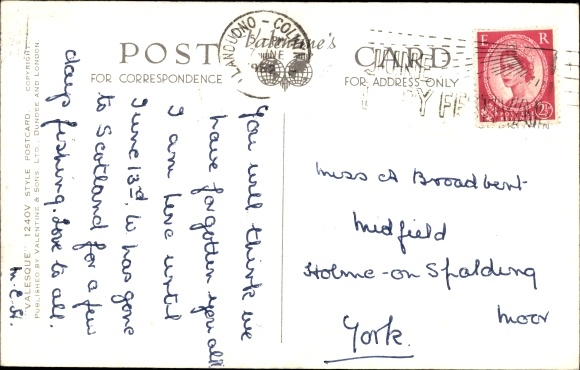 POST Valentine's CARD
FOR CORRESPONDENCE
FOR ADDRESS ONLY
LLANDUDNO - COLWYN
E R
You will think we
have forgotten you all
I am here until
June 13th. W. has gone
to Scotland for a few
days fishing. Love to all.
Miss A Broadbent
Midfield
Holme-on Spalding
Moor
York.
"VALESQUE" 1240V STYLE POSTCARD COPYRIGHT
PUBLISHED BY VALENTINE & SONS, LTD., DUNDEE AND LONDON.